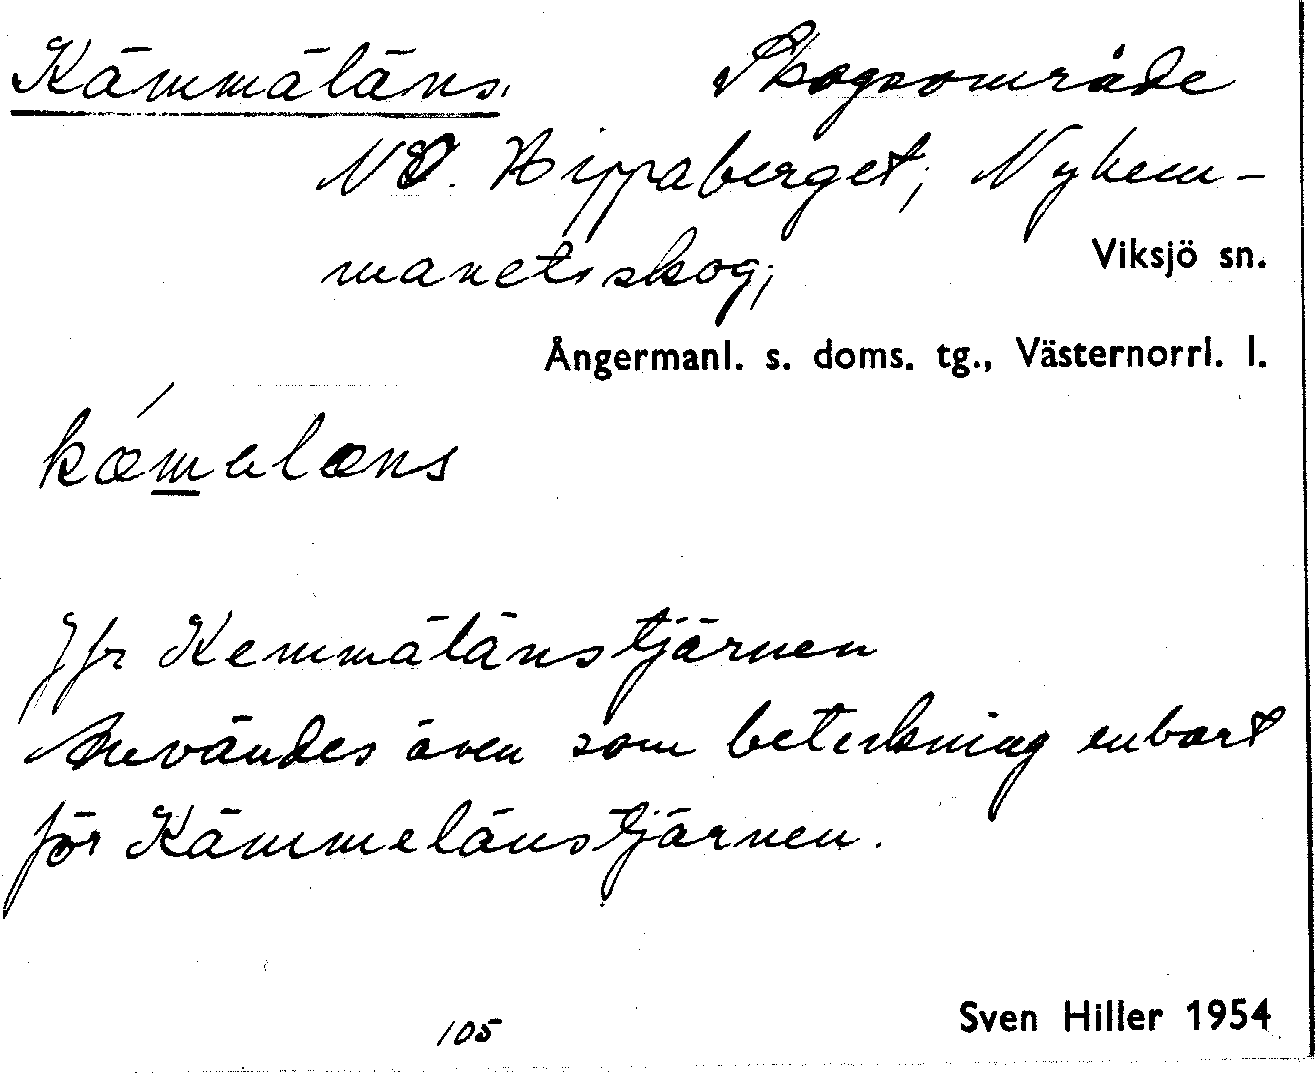 Kämmäläns. Skogsområde
NV. Hippaberget; Nyhem-
manetsskog; Viksjö sn.
Ångermanl. s. doms. tg., Västernorrl. l.
kæmelæns
Jfr Kemmälänstjärnen
Användes även som beteckning enbart
för Kämmelänstjärnen.
105 Sven Hiller 1954